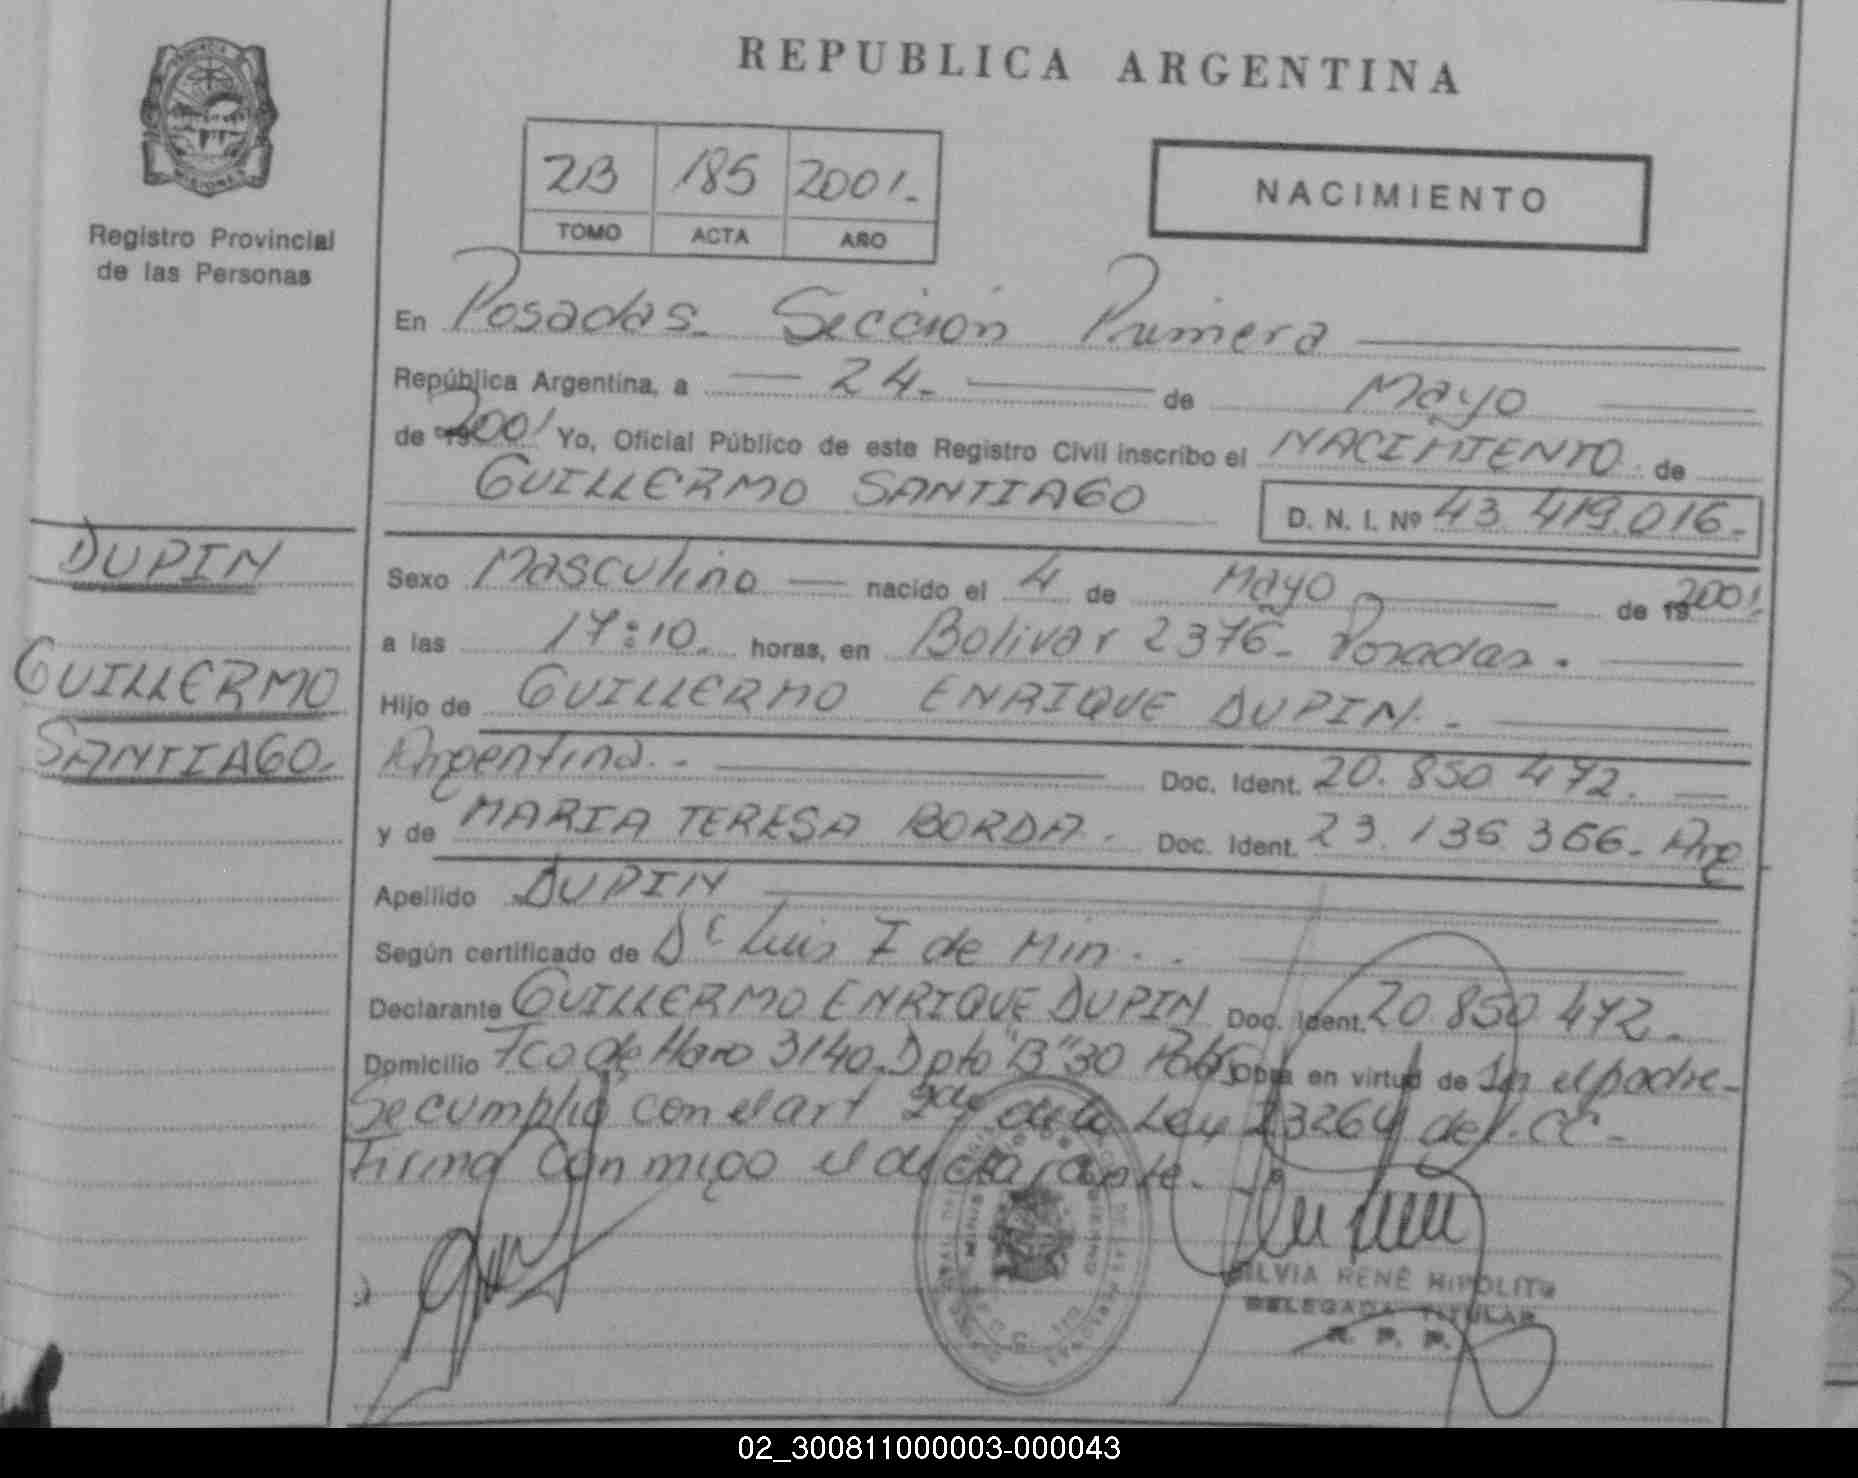 REPUBLICA ARGENTINA
MISIONES
Registro Provincial
de las Personas
2B 185 2001.-
TOMO ACTA AÑO
NACIMIENTO
En Posadas. Sección Primera
República Argentina, a 24.- de Mayo
de 2001 Yo, Oficial Público de este Registro Civil inscribo el NACIMIENTO de
GUILLERMO SANTIAGO D. N. I. Nº 43.419.016.-
DUPIN
GUILLERMO
SANTIAGO.-
Sexo Masculino nacido el 4 de Mayo de 19 2001.
a las 17:10. horas, en Bolivar 2376.- Posadas.
Hijo de GUILLERMO ENRIQUE DUPIN.-
Argentina.- Doc. Ident. 20.850.472.
y de MARIA TERESA BORDA. Doc. Ident. 23.136.366.- Arg
Apellido DUPIN
Según certificado de Dr Luis I de Min..
Declarante GUILLERMO ENRIQUE DUPIN Doc. Ident. 20.850.472.-
Domicilio Fco de Haro 3140. Dpto "B" 30 Obra en virtud de Ser el padre-
Se cumplió con el art de la Ley 23264 del. CC-
Firma conmigo el declarante.-
SILVIA RENÉ HIPOLITO
DELEGADA TITULAR
R. P. P.
02_300811000003-000043